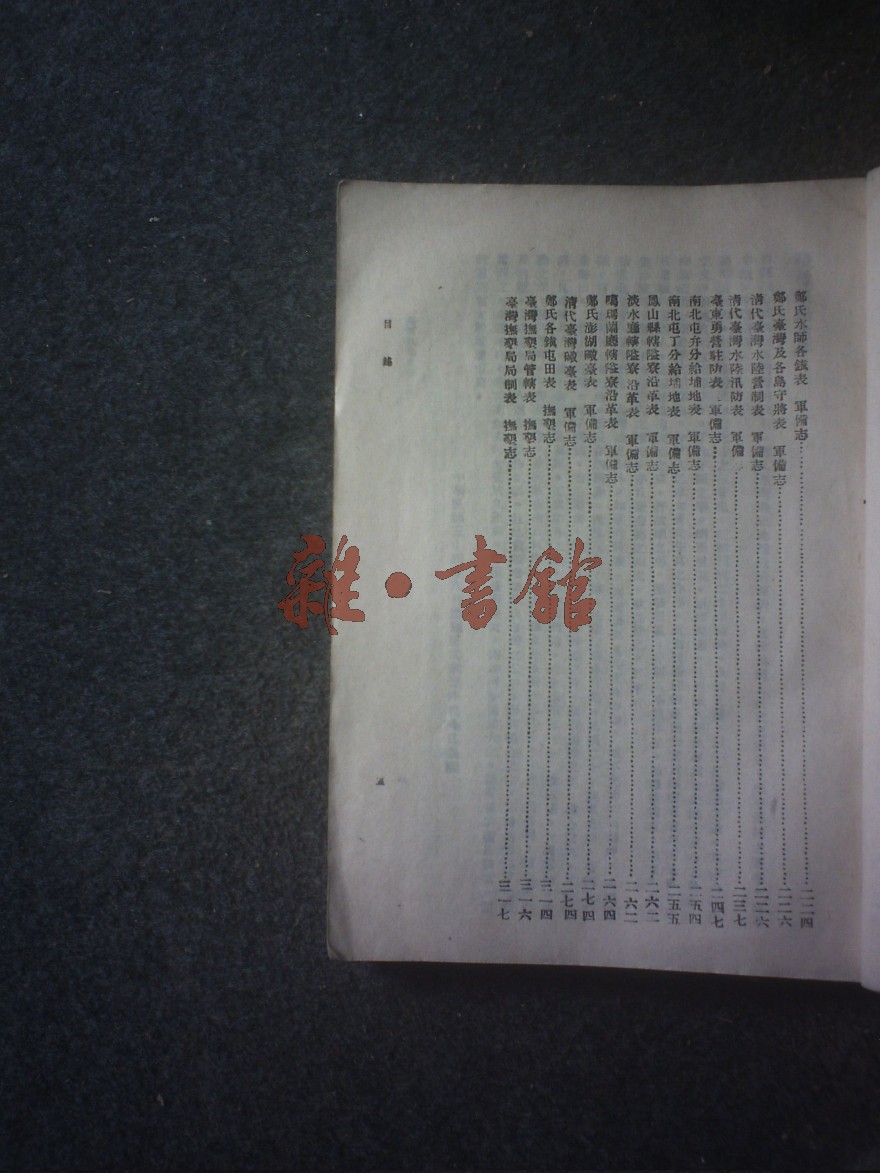 鄭氏水師各鎮表　軍備志………二二四
鄭氏臺灣及各島守將表　軍備志………二二六
清代臺灣水陸營制表　軍備志………二二六
清代臺灣水陸汛防表　軍備………二三七
臺東勇營駐防表　軍備志………二四七
南北屯弁分給埔地表　軍備志………二五四
南北屯丁分給埔地表　軍備志………二五五
鳳山縣轄隘寮沿革表　軍備志………二六二
淡水廳轄隘寮沿革表　軍備志………二六二
噶瑪蘭廳轄隘寮沿革表　軍備志………二六四
鄭氏澎湖礮臺表　軍備志………二七四
清代臺灣礮臺表　軍備志………二七四
鄭氏各鎮屯田表　撫墾志………三一四
臺灣撫墾局管轄表　撫墾志………三一六
臺灣撫墾局局制表　撫墾志………三一七
目錄
五
雜·書館